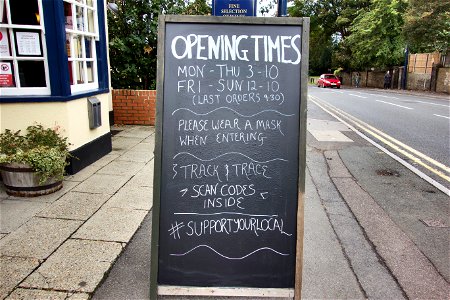 FINE
SELECTION
OPENING TIMES
MON - THU 3-10
FRI - SUN 12-10
(LAST ORDERS 9:30)
PLEASE WEAR A MASK
WHEN ENTERING
TRACK & TRACE
SCAN CODES
INSIDE
#SUPPORTYOURLOCAL